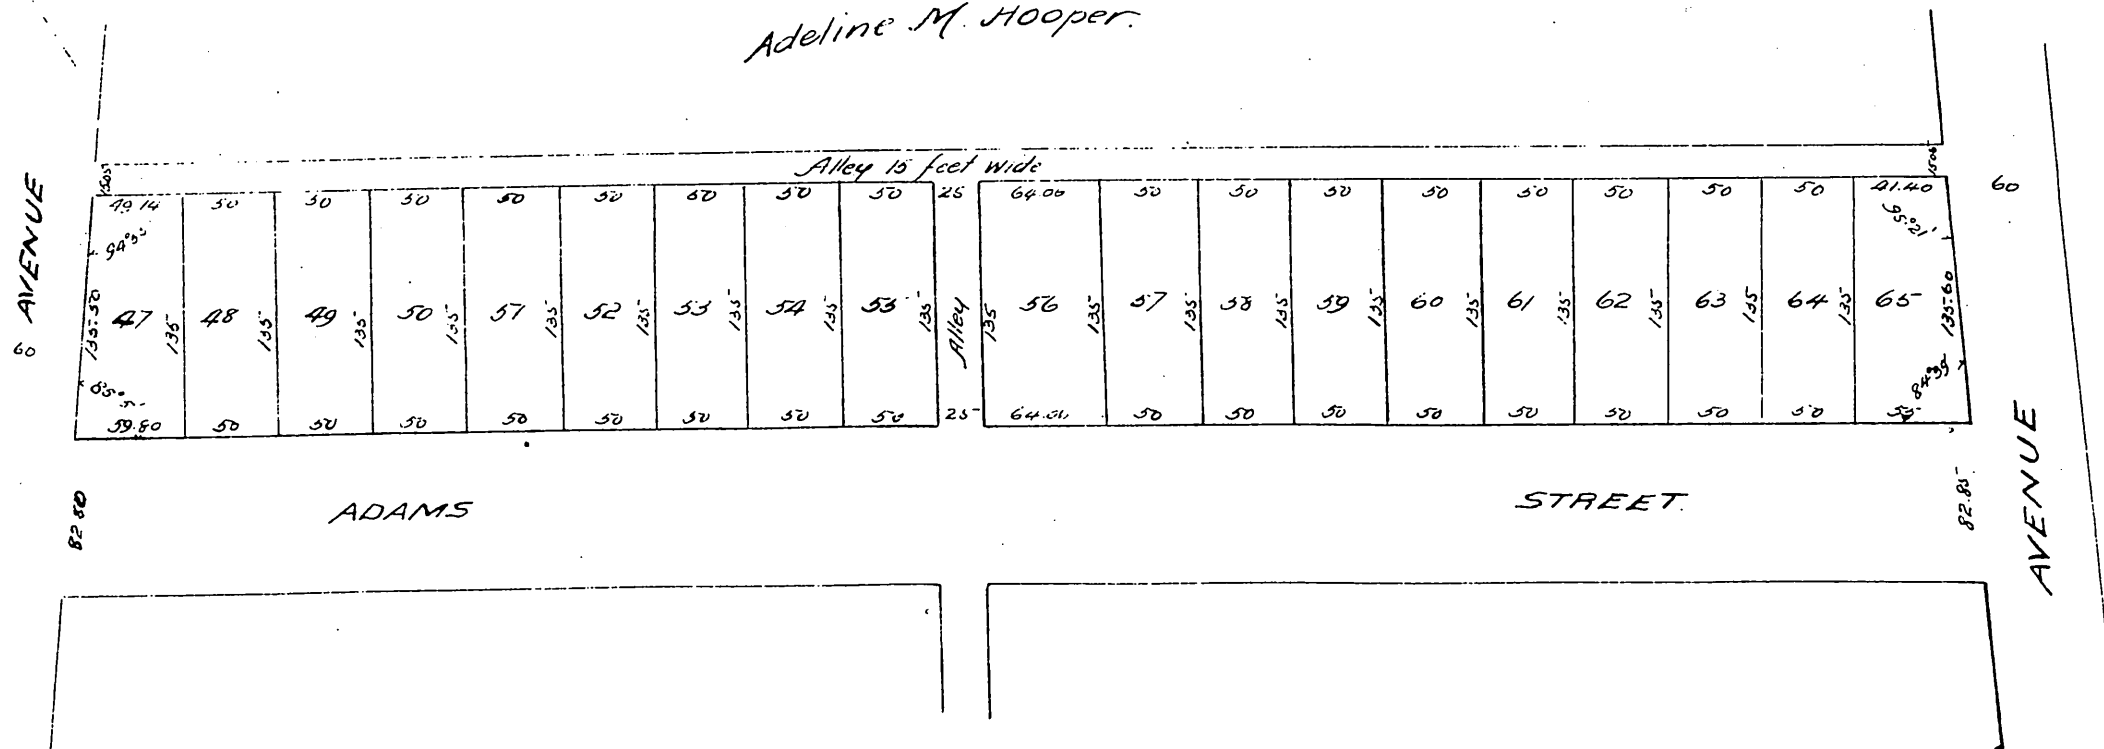 Adeline M. Hooper.
Alley 15 feet wide
1505 1505
49.14 50 50 50 50 50 50 50 50 25 64.00 50 50 50 50 50 50 50 50 41.40
60 AVENUE
94° 95°21'
135.50 47 135 48 135 49 135 50 135 51 135 52 135 53 135 54 135 55 135 Alley 135 56 135 57 135 58 135 59 135 60 135 61 135 62 135 63 135 64 135 65 135.60
85° 84°39'
59.80 50 50 50 50 50 50 50 50 25 64.00 50 50 50 50 50 50 50 50
60 AVENUE
82.80 ADAMS STREET. 82.85